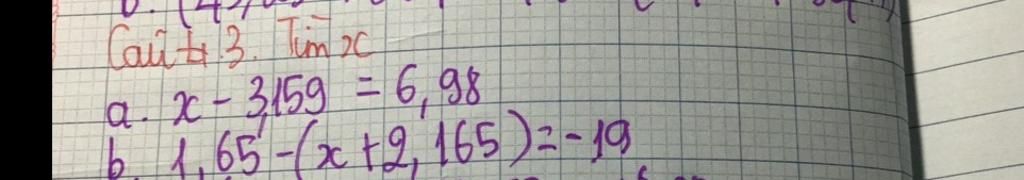 Câu 3. Tìm x
a. x - 3,159 = 6,98
b. 1,65 - (x + 2,165) = - 19